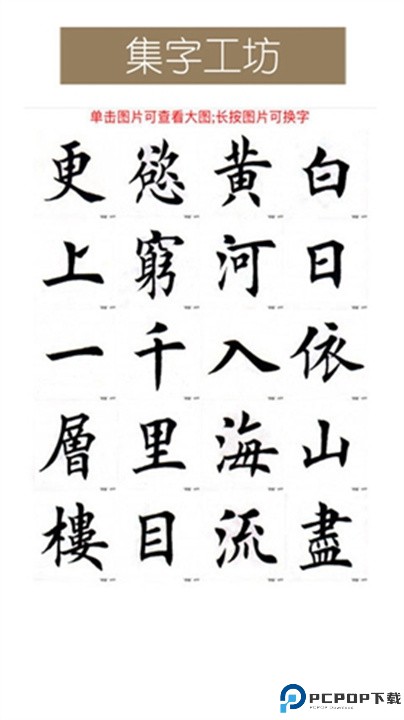 集字工坊
单击图片可查看大图;长按图片可换字
白日依山盡
黄河入海流
慾窮千里目
更上一層樓
PCPOP下载
PCPOP Download